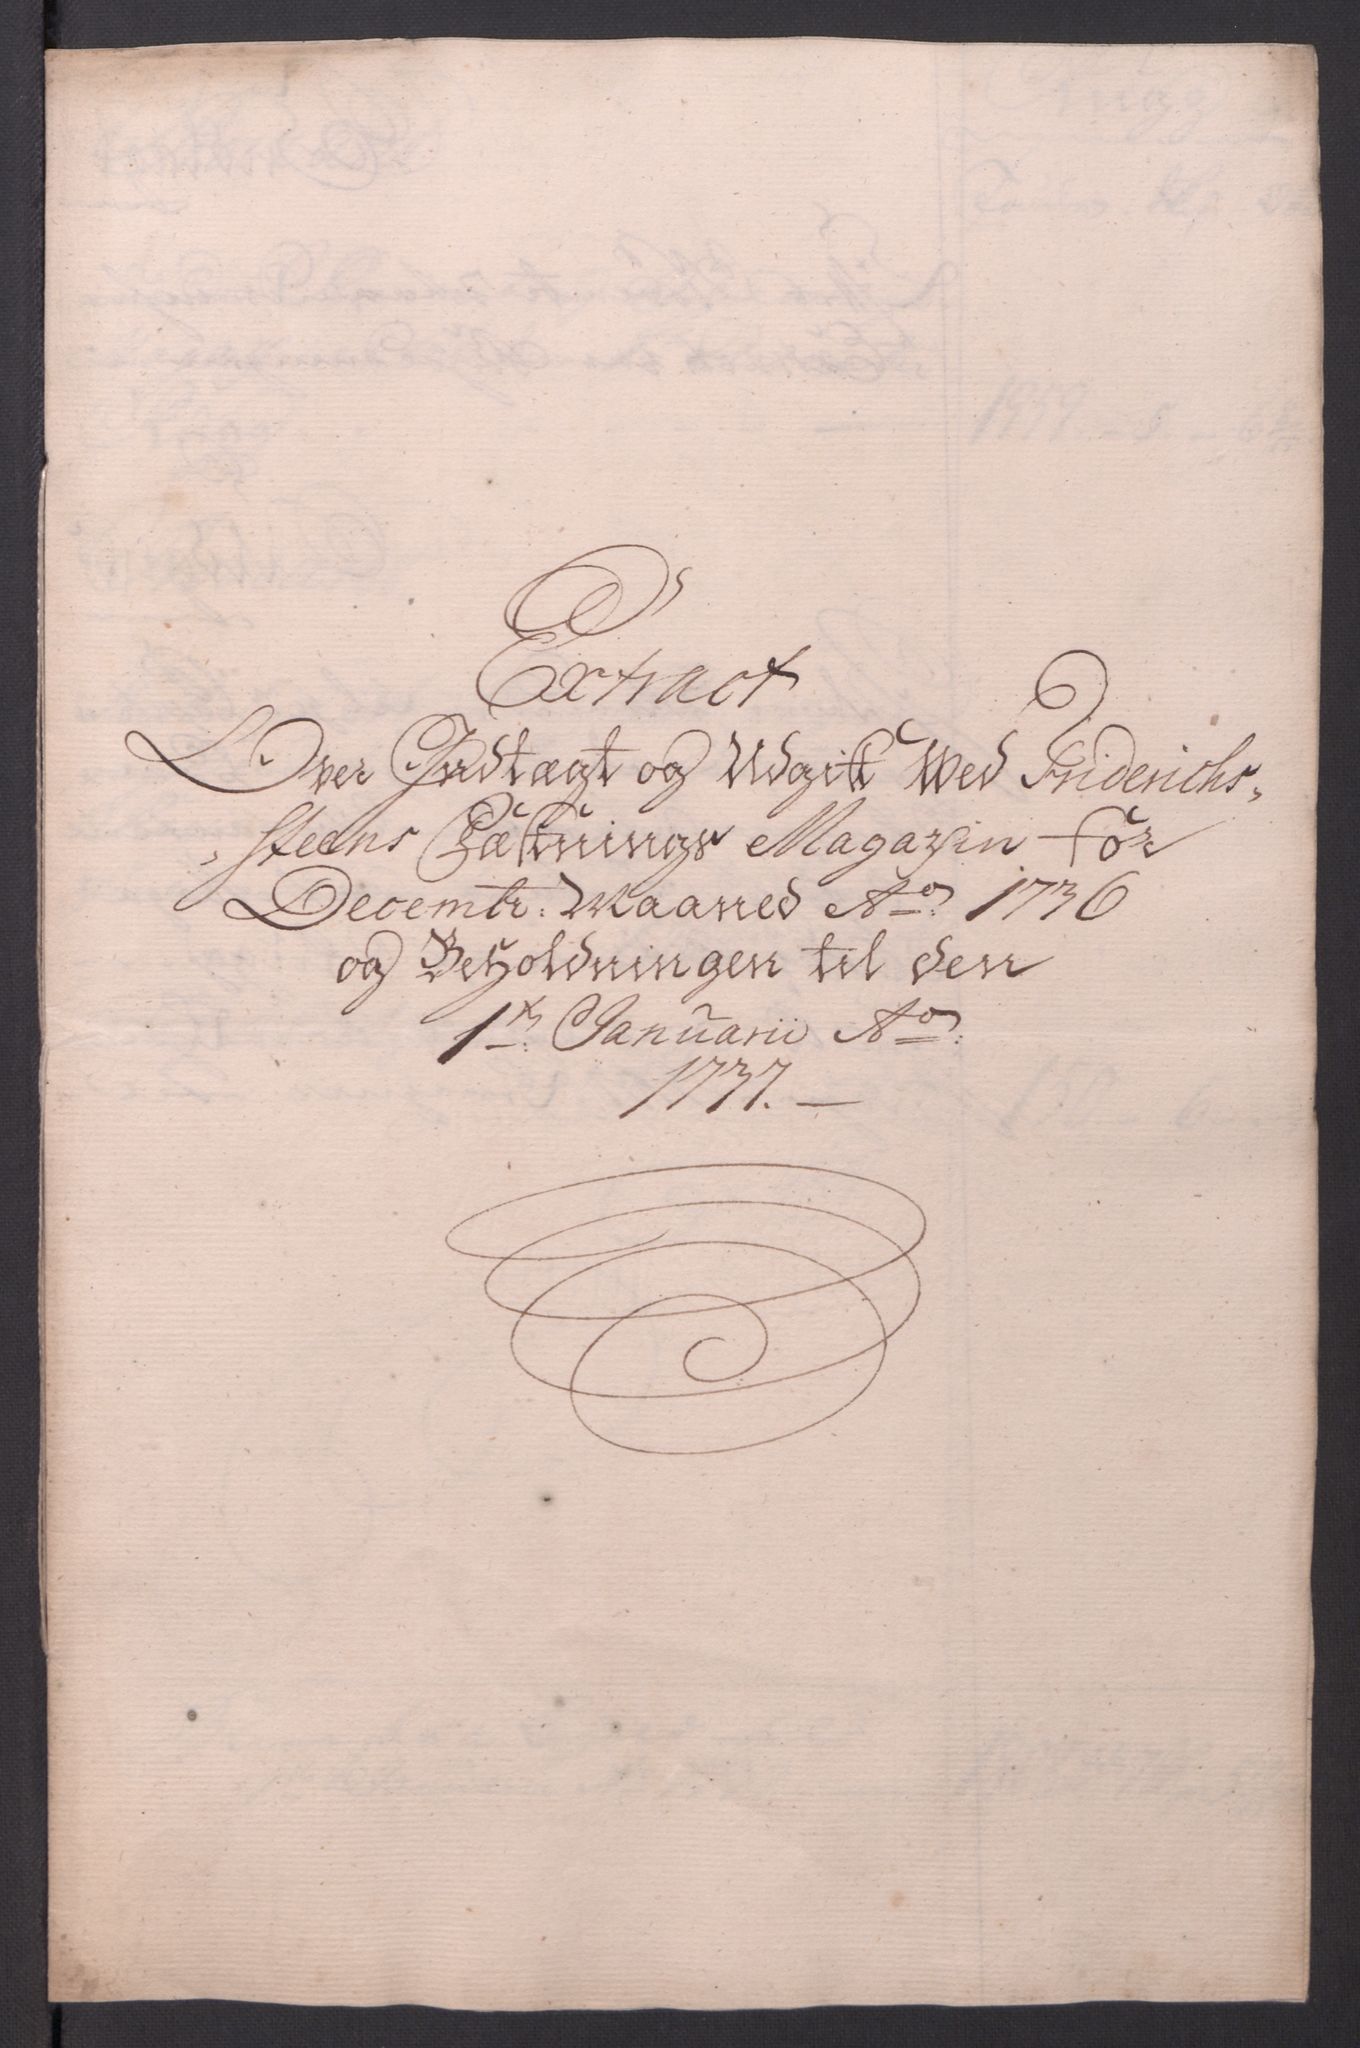 Extract
Over Indtægt og Udgift Wed Friderichs-
-steens Fæstnings Magazin for
Decembr: Maaned Ao: 1736
og Beholdningen til den
1te: Januarii Ao:
1737. —